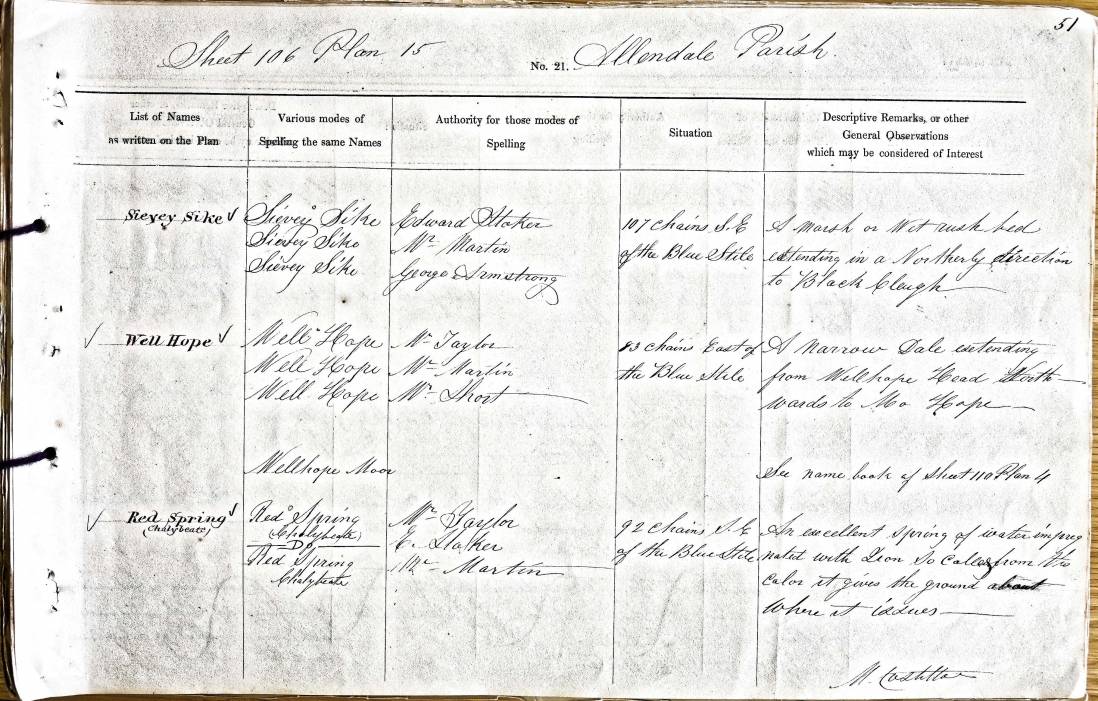 51
Sheet 106 Plan 15 No. 21. Allendale Parish
List of Names as written on the Plan
Various modes of Spelling the same Names
Authority for those modes of Spelling
Situation
Descriptive Remarks, or other General Observations which may be considered of Interest
Sievey Sike
Sievey Sike
Sievey Sike
Sievey Sike
Edward Stoker
Mr. Martin
George Armstrong
107 chains S.E
of the Blue Stile
A Marsh or Wet rush bed
extending in a Northerly direction
to Black Cleugh
Well Hope
Well Hope
Well Hope
Well Hope
Mr Taylor
Mr Martin
Mr Short
83 chains East of
the Blue Stile
A Narrow Dale extending
from Wellhope Head North
wards to Mo Hope
Wellhope Moor
See name book of Sheet 110 Plan 4
Red Spring
(Chalybeate)
Red Spring
(Chalybeate)
Do
Red Spring
Chalybeate
Mr Taylor
E. Stoker
Mr Martin
92 chains S.E
of the Blue Stile
An excellent Spring of water impreg
nated with Iron So Called from the
color it gives the ground about
Where it issues